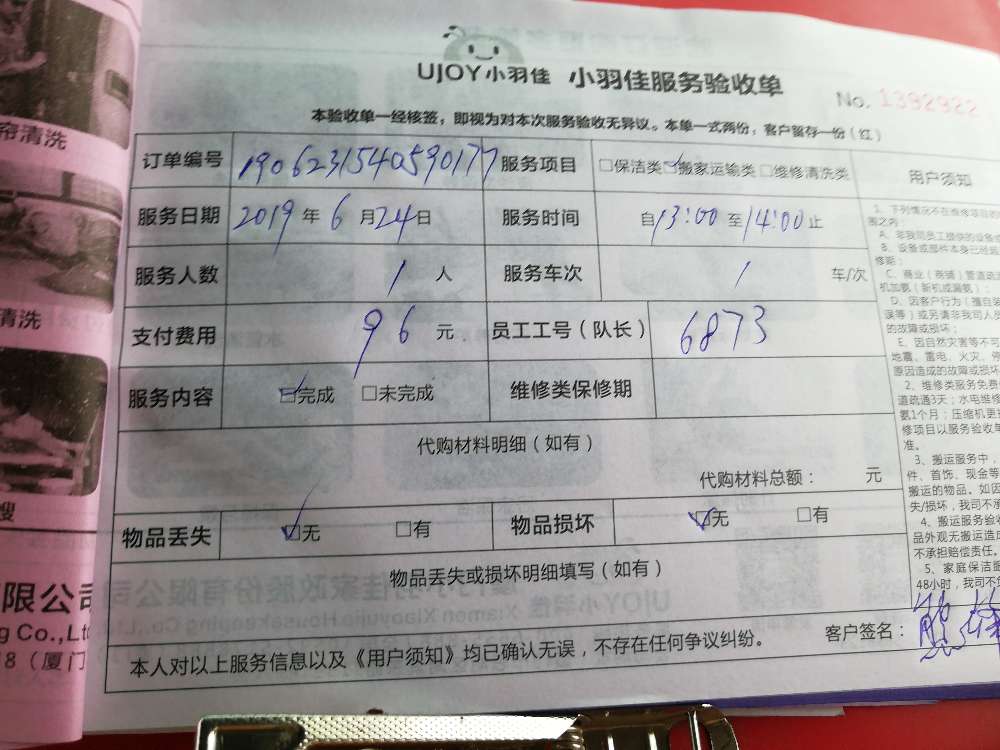 UJOY小羽佳 小羽佳服务验收单
No. 1392922
本验收单一经核签，即视为对本次服务验收无异议。本单一式两份，客户留存一份（红）
订单编号 1906231540590177 服务项目 □保洁类 ☑搬家运输类 □维修清洗类
服务日期 2019年6月24日 服务时间 自13:00至14:00止
服务人数 1人 服务车次 1 车/次
支付费用 96元 员工工号（队长） 6873
服务内容 ☑完成 □未完成 维修类保修期
代购材料明细（如有）
代购材料总额： 元
物品丢失 ☑无 □有 物品损坏 ☑无 □有
物品丢失或损坏明细填写（如有）
客户签名：
本人对以上服务信息以及《用户须知》均已确认无误，不存在任何争议纠纷。
用户须知
1、下列情况不在维修项目的
围之内
A、非我司员工提供的设备或
B、设备或部件本身已经超
修期；
C、商业（商铺）管道疏
机加氨（新机或漏氨）；
D、因客户行为（擅自装
误等）或另请非我司人员
的故障或损坏；
E、因自然灾害等不可
地震、雷电、火灾、停
原因造成的故障或损坏
2、维修类服务免费
道疏通3天；水电维修
氨1个月；压缩机更
修项目以服务验收单
准。
3、搬运服务中，
件、首饰、现金等
搬运的物品。如因
失/损坏，我司不承
4、搬运服务验
品外观无搬运造成
不承担赔偿责任。
5、家庭保洁服
48小时，我司不
帘清洗
清洗
搜
限公司
g Co.,Ltd
8（厦门